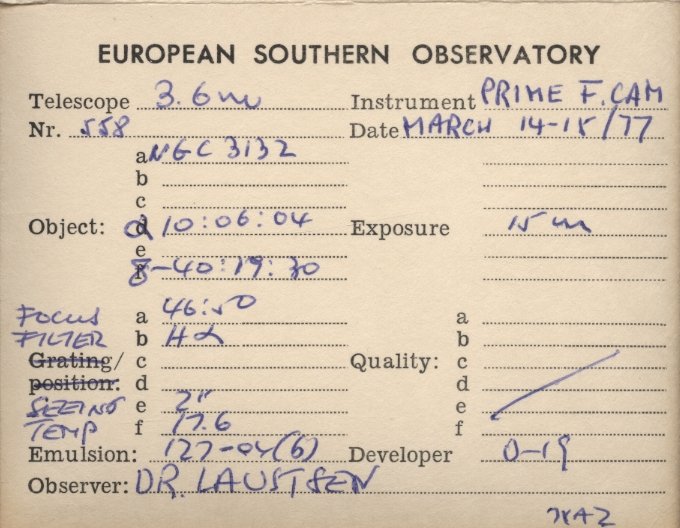 EUROPEAN SOUTHERN OBSERVATORY
Telescope 3.6m Instrument PRIME F. CAM
Nr. 558 Date MARCH 14-15/77
a NGC 3132
b
c
Object: d α 10:06:04 Exposure 15 m
e
f δ -40:19:30
FOCUS a 46:50 a
FILTER b Hα b
Grating/ c Quality: c
position: d d
SEEING e 2" e
TEMP f 17.6 f
Emulsion: 127-04(6) Developer D-19
Observer: DR. LAUSTSEN